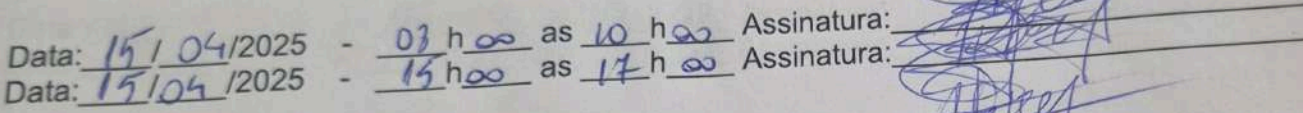 Data: 15/04/2025 - 03 h 00 as 10 h 00 Assinatura:
Data: 15/04/2025 - 15 h 00 as 17 h 00 Assinatura: